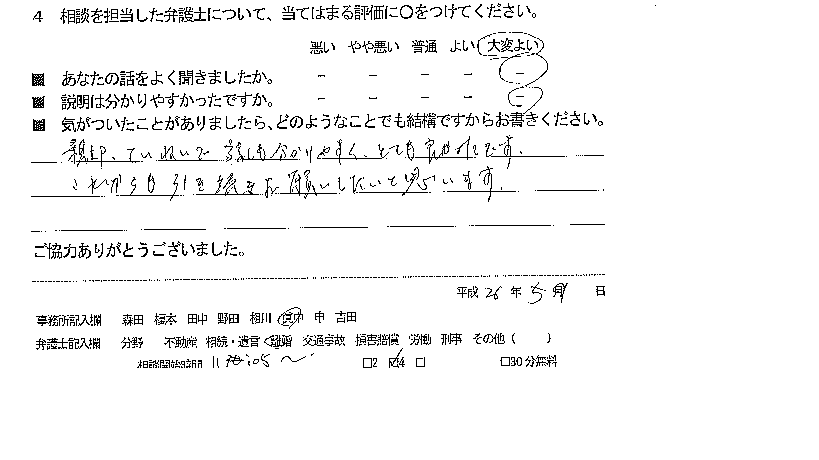 4 相談を担当した弁護士について、当てはまる評価に○をつけてください。
悪い やや悪い 普通 よい 大変よい
あなたの話をよく聞きましたか。 － － － － －
説明は分かりやすかったですか。 － － － － －
気がついたことがありましたら、どのようなことでも結構ですからお書きください。
親切、ていねいで話しも分かりやすく、とても良かったです。
これからも引き続きお願いしたいと思います。
ご協力ありがとうございました。
平成 26 年 5 月 日
事務所記入欄 森田 榎本 田中 野田 相川 申 吉田
弁護士記入欄 分野 不動産 相続・遺言 離婚 交通事故 損害賠償 労働 刑事 その他（ ）
相談開始時間 11 時:05 ～ □2 ☑4 □ □30分無料